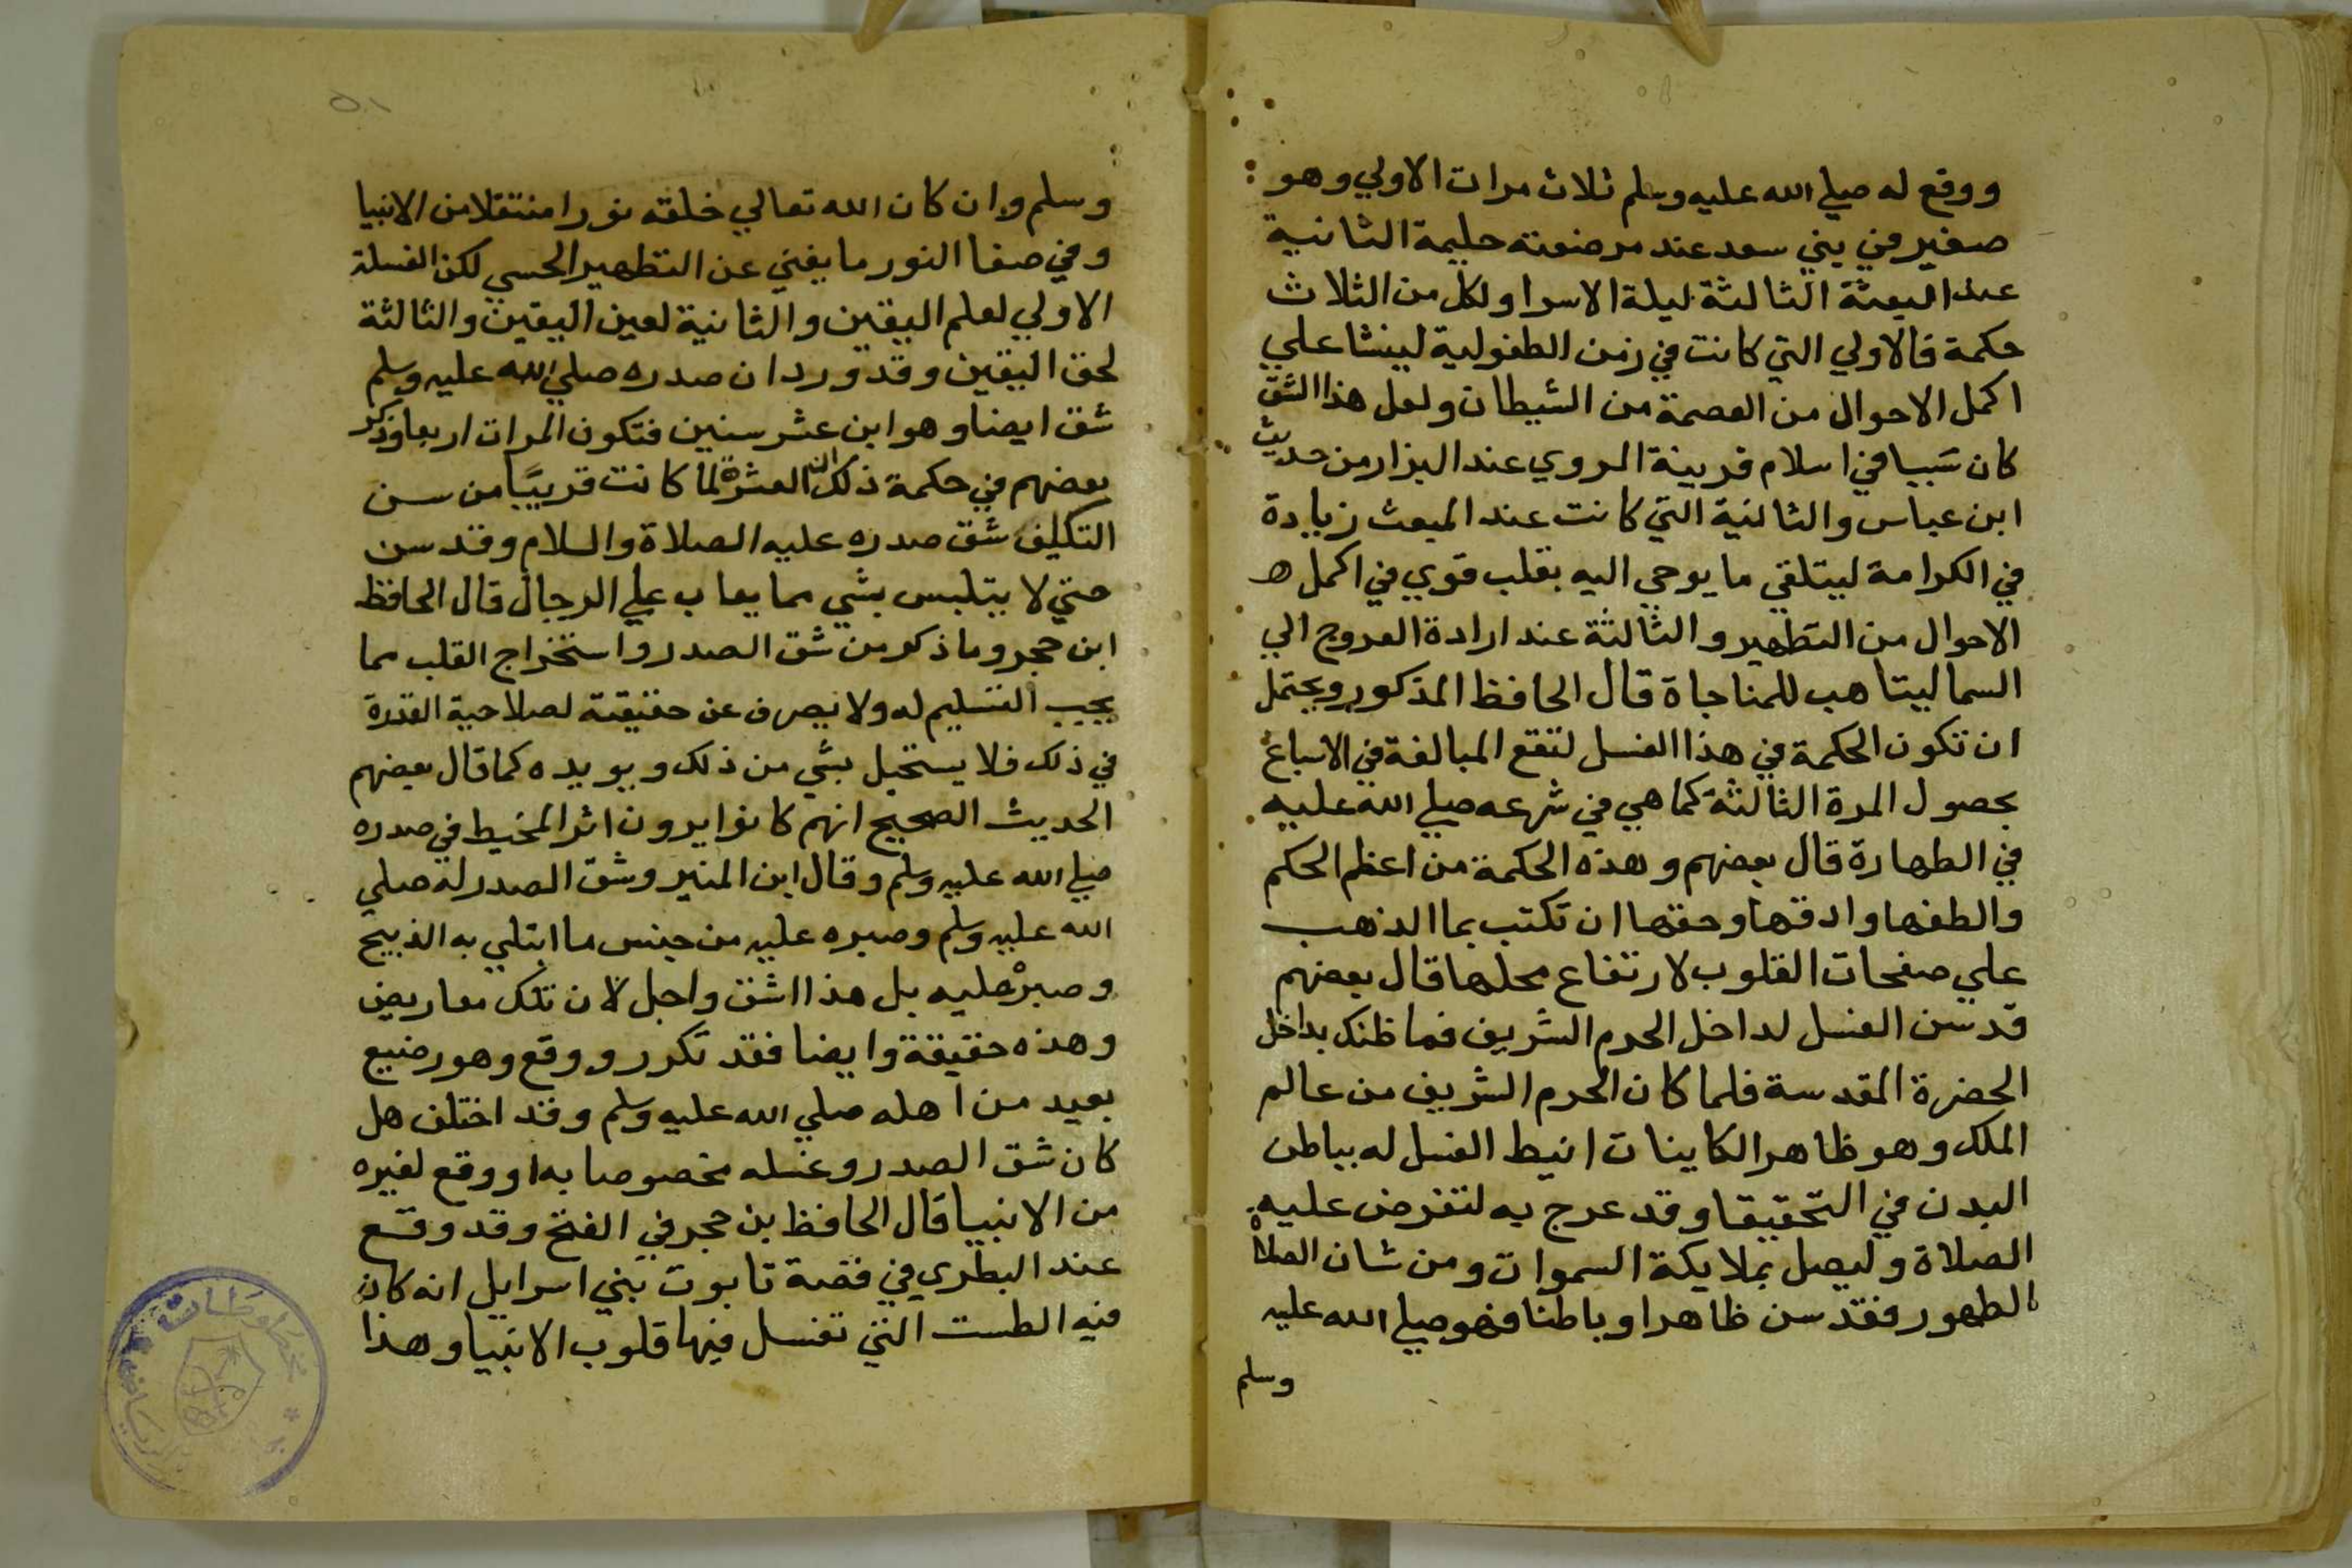 ووقع له صلي الله عليه وسلم ثلاث مرات الاولي وهو
صغير في بني سعد عند مرضعته حليمة الثانية
عند البعثة الثالثة ليلة الاسرا ولكل من الثلاث
حكمة فالاولي التي كانت في زمن الطفولية لينشا علي
اكمل الاحوال من العصمة من الشيطان ولعل هذا الشق
كان سببا في اسلام قرينة المروي عند البزار من حديث
ابن عباس والثانية التي كانت عند المبعث زيادة
في الكرامة ليتلقي ما يوحي اليه بقلب قوي في اكمل ه
الاحوال من التطهير والثالثة عند ارادة العروج الي
السما ليتاهب للمناجاة قال الحافظ المذكور ويحتمل
ان تكون الحكمة في هذا الغسل لتقع المبالغة في الاسباغ
بحصول المرة الثالثة كما هي في شرعه صلي الله عليه
في الطهارة قال بعضهم وهذه الحكمة من اعظم الحكم
والطفها وادقها وحقها ان تكتب بما الذهب
علي صفحات القلوب لارتفاع محلها قال بعضهم
قد سن الغسل لداخل الحرم الشريف فما ظنك بداخل
الحضرة المقدسة فلما كان الحرم الشريف من عالم
الملك وهو ظاهر الكاينات انيط الغسل له بباطن
البدن في التحقيقا وقد عرج به لتفرض عليه
الصلاة وليصل بملايكة السموات ومن شان الصلاة
الطهور فقد سن ظاهرا وباطنا فهو صلي الله عليه
وسلم
وسلم وان كان الله تعالي خلقه نورا منتقلا من الانبيا
وفي صفا النور ما يغني عن التطهير الحسي لكن الغسلة
الاولي لعلم اليقين والثانية لعين اليقين والثالثة
لحق اليقين وقد ورد ان صدره صلي الله عليه وسلم
شق ايضا وهو ابن عشر سنين فتكون المرات اربعا وذكر
بعضهم في حكمة ذلك ان العشرة لما كانت قريبًا من سن
التكليف شق صدره عليه الصلاة والسلام وقد سن
حتي لا يتلبس بشي مما يعاب علي الرجال قال الحافظ
ابن حجر وما ذكر من شق الصدر واستخراج القلب مما
يجب التسليم له ولا يصرف عن حقيقته لصلاحية القدرة
في ذلك فلا يستحيل بشي من ذلك ويويده كما قال بعضهم
الحديث الصحيح انهم كانوا يرون اثر المخيط في صدره
صلي الله عليه وسلم وقال ابن المنير وشق الصدر له صلي
الله عليه وسلم وصبره عليه من جنس ما ابتلي به الذبيح
وصبر عليه بل هذا اشق واجل لان تلك معاريض
وهذه حقيقة وايضا فقد تكرر ووقع وهو رضيع
بعيد من اهله صلي الله عليه وسلم وقد اختلف هل
كان شق الصدر وغسله مخصوصا به او وقع لغيره
من الانبيا قال الحافظ بن حجر في الفتح وقد وقع
عند البطري في قصة تابوت بني اسرايل انه كان
فيه الطست التي تغسل فيها قلوب الانبيا وهذا